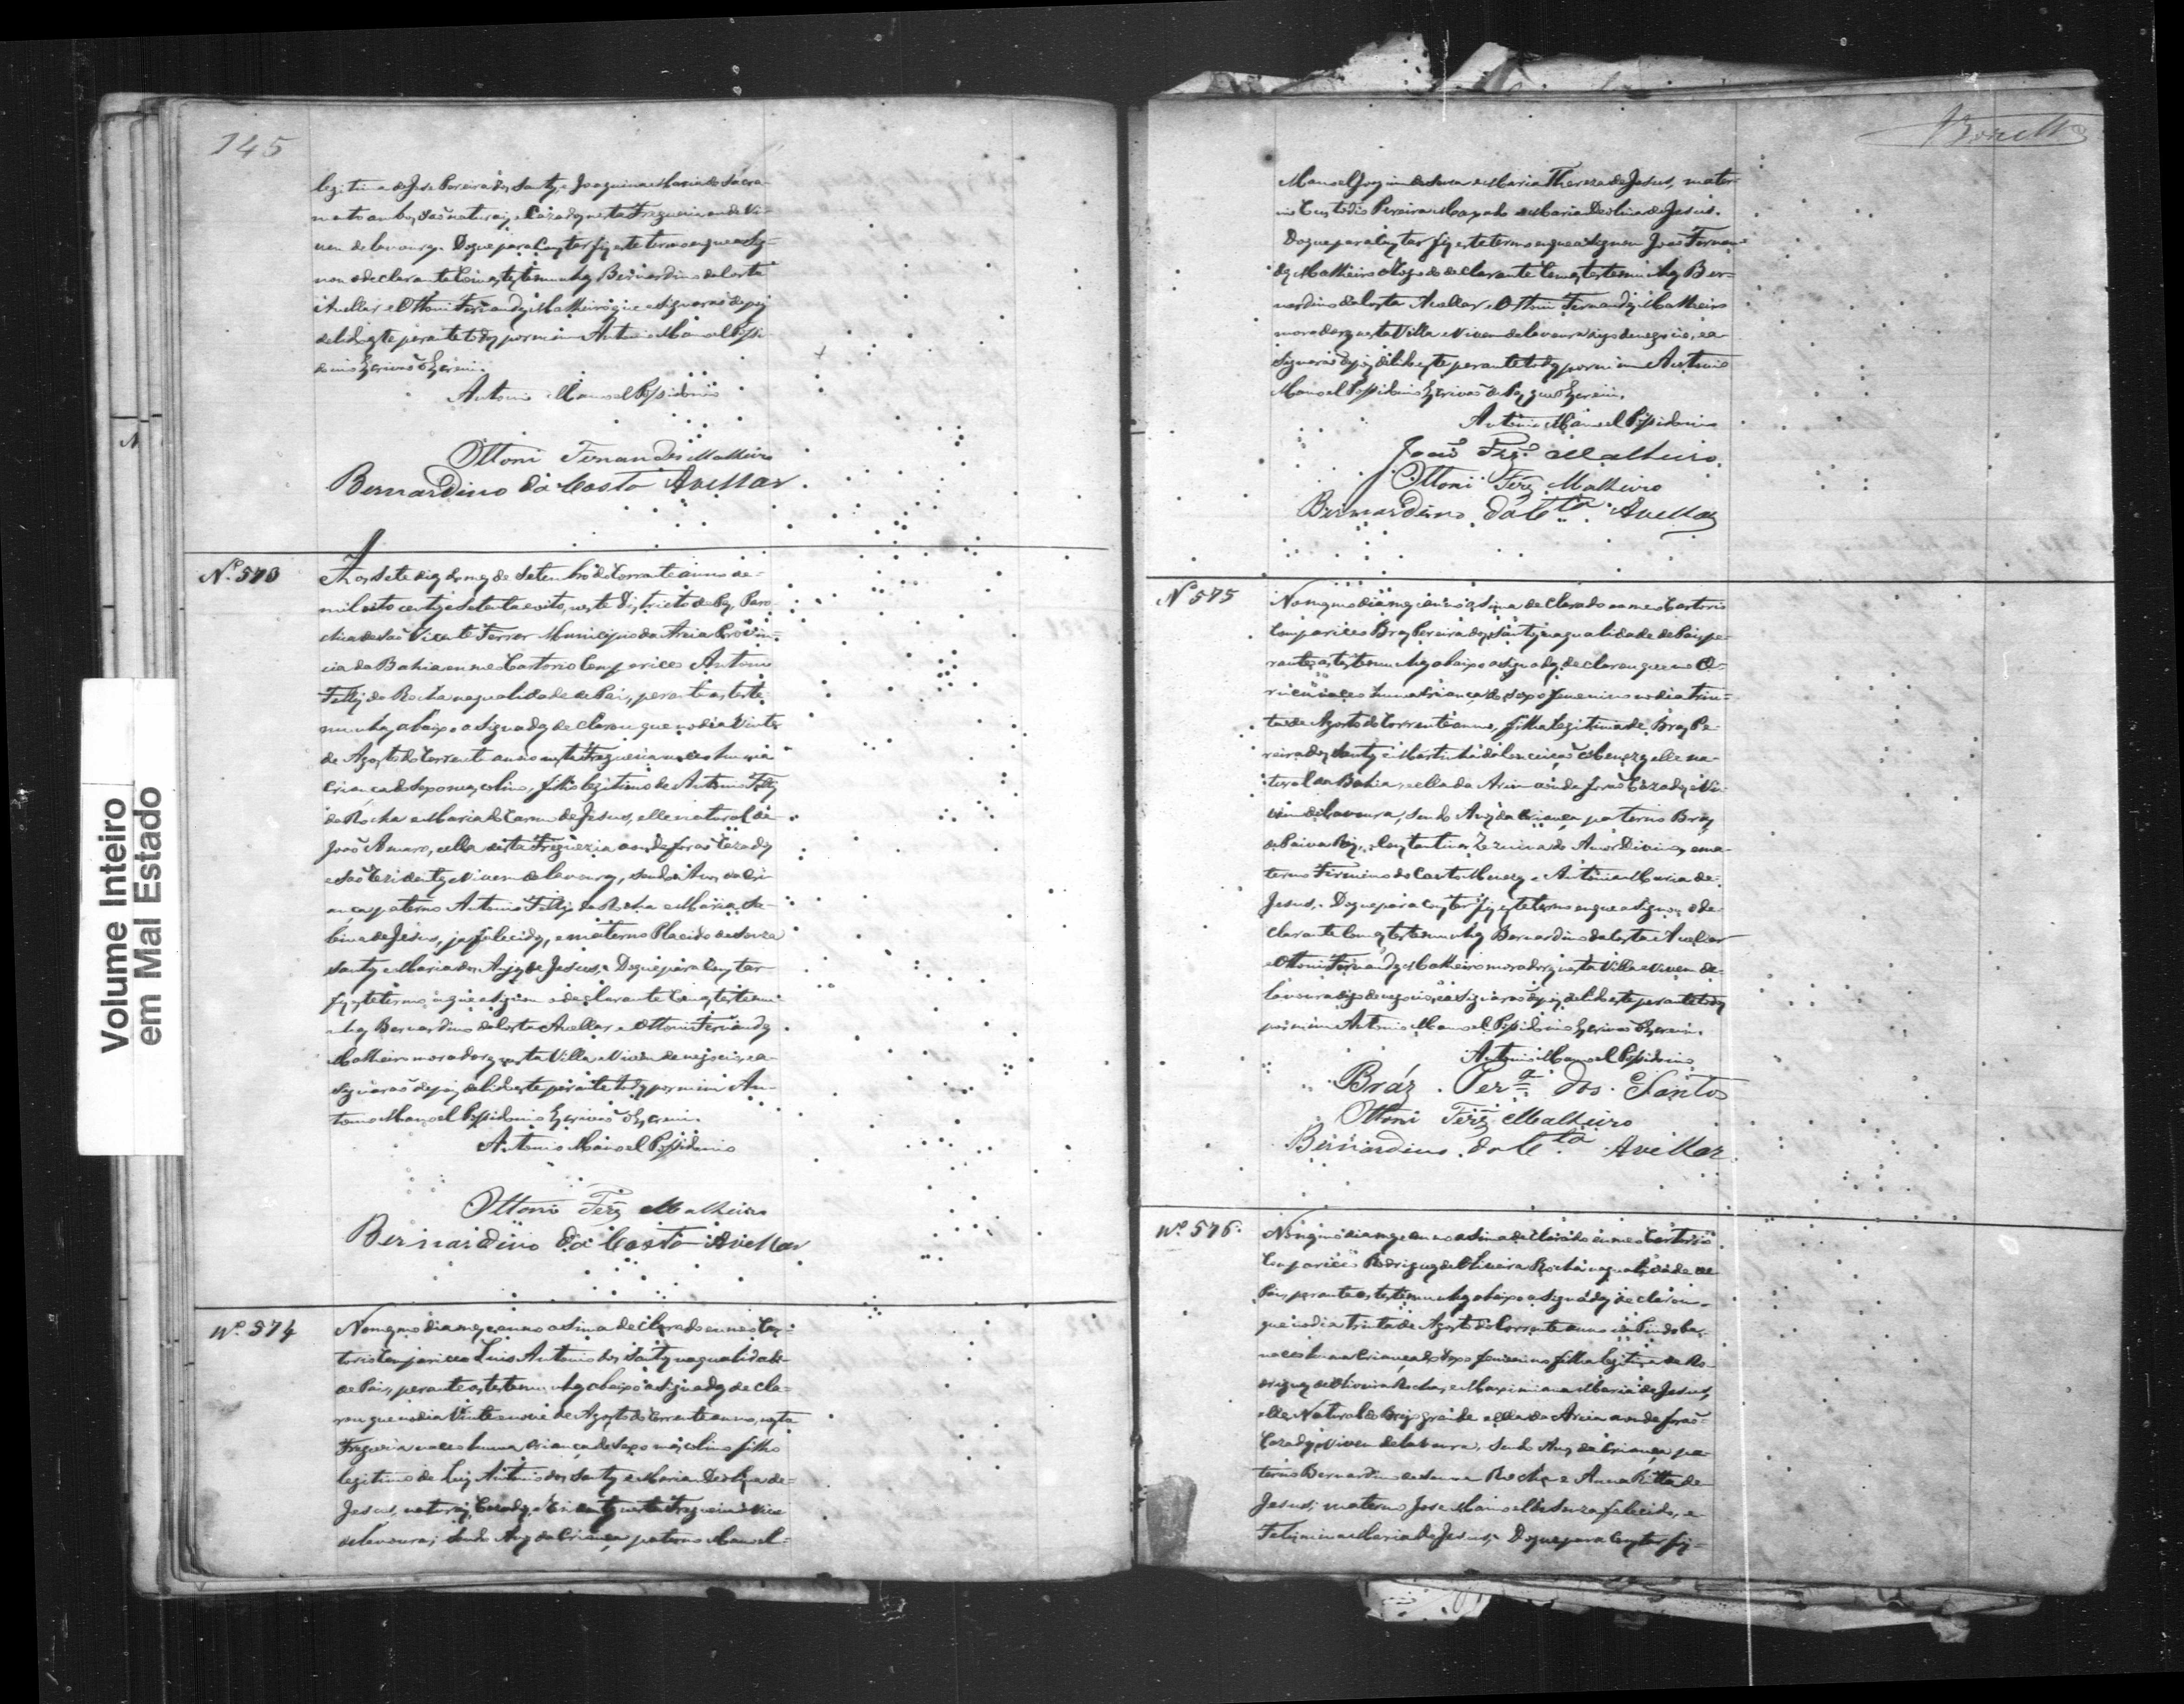 145
legitima de Jose Pereira dos Santos, e Joaquina Maria do Sacra-
mento ambos são naturais e Cazados nesta Freguezia onde Vi-
vem de lavoura. Do que para Constar fiz este termo em que asig-
nou o declarante Com as testemunhas Bernardino da Costa
Avellar e Ottoni Fernandes Malheiro que asignarão depois
de lido este perante todos por mim Antonio Manoel Possi-
donio Escrivão o Escrevi.
Antonio Manoel Possidonio
Ottoni Fernandes Malheiro
Bernardino da Costa Avellar
Nº 573
Aos Sete dias do mes de Setembro do Corrente anno de
mil oito centos e Setenta e oito, neste Districto de Paz, Paro-
chia de São Vicente Ferrer Municipio da Areia Provin-
cia da Bahia em meo Cartorio Compariceo Antonio
Felis da Rocha na qualidade de Pai, perante as teste-
munhas abaixo asignados declarou que no dia Vinte
de Agosto do Corrente anno nesta Freguezia nasceo huma
Criança do Sexo masculino, filho legitimo de Antonio Felis
da Rocha e Maria do Carmo de Jesus, elle natural de
João Amaro, e ella desta Freguezia aonde forão Cazados
e São Rezidentes e Vivem de lavoura, Sendo os Avos da Cri-
ança paterno Antonio Felis da Rocha e Maria
de Jesus, ja falecidos, e materno Placido de Souza
Santos e Maria dos Anjos de Jesus. Do que para Constar
fiz este termo em que asignou o declarante Com as testemu-
nhas Bernardino da Costa Avellar e Ottoni Fernandes
Malheiro moradores nesta Villa e Vivem de negocio, e a-
signarão depois de lido este perante todos por mim An-
tonio Manoel Possidonio Escrivão o Escrevi.
Antonio Manoel Possidonio
Ottoni Ferz Malheiro
Bernardino da Costa Avellar
Nº 574
No mesmo dia mes e anno asima declarado em meo Car-
torio Compariceo Luis Antonio dos Santos na qualidade
de Pai, perante as testemunhas abaixo asignados decla-
rou que no dia Vinte e nove de Agosto do Corrente anno, nesta
Freguezia nasceo huma Criança do Sexo masculino filho
legitimo de Luis Antonio dos Santos e Maria Deolina de
Jesus, naturais, Cazados, e nesta Freguezia e Vive
de lavoura; Sendo Avos da Criança paterno Manoel
Manoel Joaquim de Souza e Maria Thereza de Jesus, mater-
no Custodio Pereira Maxado e Maria Deolina de Jesus.
Do que para Constar fiz este termo em que asignou João Fernan-
des Malheiro a Rogo do declarante Com as testemunhas Ber-
nardino da Costa Avellar e Ottoni Fernandes Malheiro
moradores nesta Villa e Vivem de lavoura digo de negocio, e a-
signarão depois de lido este perante todos por mim Antonio
Manoel Possidonio Escrivão de Paz que o Escrevi.
Antonio Manoel Possidonio
João Frz Malheiro
Ottoni Ferz Malheiro
Bernardino da Cta Avellar
Nº 575
No mesmo dia mes e anno asima declarado em meo Cartorio
Compariceo Bras Pereira dos Santos na qualidade de Pai, pe-
rante as testemunhas abaixo asignados, declarou que no
nasceo huma Criança do Sexo femenino no dia trin-
ta de Agosto do Corrente anno, filha legitima de Bras Pe-
reira dos Santos e Martinha da Conceição Menezes elle na-
tural da Bahia, e ella da Areia aonde forão Cazados e Vi-
vem de lavoura, Sendo Avos da Criança paterno Bras
de Paiva Reis, e Constantina Zeruina do Amor Divino, e ma-
terno Firmino do Couto Menezes e Antonia Maria de
Jesus. Do que para Constar fiz este termo em que asignou o de-
clarante Com as testemunhas Bernardino da Costa Avellar
e Ottoni Fernandes Malheiro moradores nesta Villa e Vivem de
lavoura digo de negocio, e asignarão depois de lido este perante todos
por mim Antonio Manoel Possidonio Escrivão o Escrevi.
Antonio Manoel Possidonio
Bráz Pera dos Santos
Ottoni Ferz Malheiro
Bernardino da Cta Avellar
Nº 576
No mesmo dia mes e anno asima declarado em meo Cartorio
Compariceo Rodrigues de Oliveira Rocha na qualidade de
Pai, perante as testemunhas abaixo asignados declarou
que no dia trinta de Agosto do Corrente anno
nasceo huma Criança do Sexo femenino filha legitima de Ro-
drigues de Oliveira Rocha, e Maximiana Maria de Jesus,
elle Natural do Brejo grande e ella da Areia aonde forão
Cazados, e Vivem de lavoura, Sendo Avos da Criança pa-
terno Bernardino de Rocha e Anna Ritta de
Jesus; materno Jose Manoel de Souza falecido, e
Felismina Maria de Jesus. Do que para Constar fiz
Volume Inteiro
em Mal Estado